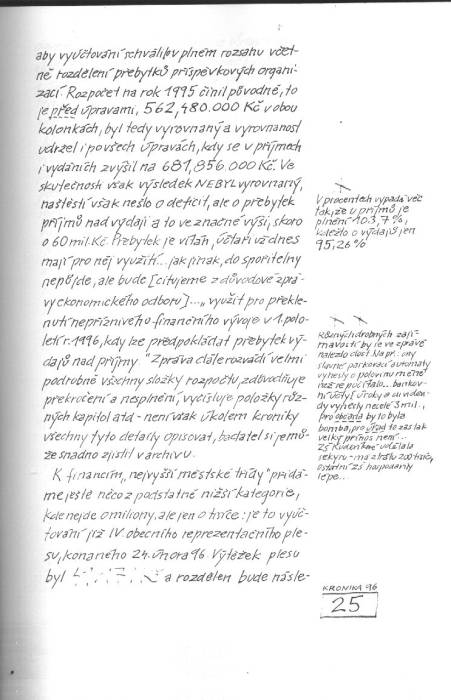 aby vyúčtování schválil v plném rozsahu včet-
ně rozdělení přebytků příspěvkových organi-
zací. Rozpočet na rok 1995 činil původně, to
je před úpravami, 562,480.000 Kč v obou
kolonkách, byl tedy vyrovnaný a vyrovnanost
udržel i po všech úpravách, kdy se v příjmech
i vydáních zvýšil na 681,856.000 Kč. Ve
skutečnosti však výsledek NEBYL vyrovnaný,
naštěstí však nešlo o deficit, ale o přebytek
příjmů nad výdaji a to ve značné výši, skoro
o 60 mil. Kč. Přebytek je vítán, účtaři už dnes
mají pro něj využití... jak jinak, do spořitelny
nepůjde, ale bude [citujeme z důvodové zprá-
vy ekonomického odboru]... „využit pro překle-
nutí nepříznivého finančního vývoje v 1. polo-
letí r. 1996, kdy lze předpokládat přebytek vý-
dajů nad příjmy“ Zpráva dále rozvádí velmi
podrobně všechny složky rozpočtu, zdůvodňuje
překročení a nesplnění, vyčísluje položky růz-
ných kapitol atd - není však úkolem kroniky
všechny tyto detaily opisovat, badatel si je mů-
že snadno zjistit v archivu.
K financím „nejvyšší městské třídy“ přidá-
me ještě něco z podstatně nižší kategorie,
kde nejde o miliony, ale jen o tisíce: je to vyúč-
tování již IV obecního reprezentačního ple-
su, konaného 24. února 96. Výtěžek plesu
byl a rozdělen bude násle-
V procentech vypadá věc
tak, že u příjmů je
plnění 103,7%,
kdežto o výdajů jen
95,26%
Různých drobných zají-
mavostí by se ve zprávě
nalezlo dost. Např.: ony
slavné parkovací automaty
vynesly o polovinu méně
než se počítalo... bankov-
ní účty [úroky a dividen-
dy vynesly necelé 3 mil.,
pro občana by to byla
bomba, pro úřad to zas tak
velký přínos není...
ZŠ udělala
sekyru - má ztrátu 200 tisíc,
ostatní ZŠ hospodařily
lépe...
KRONIKA 96
25